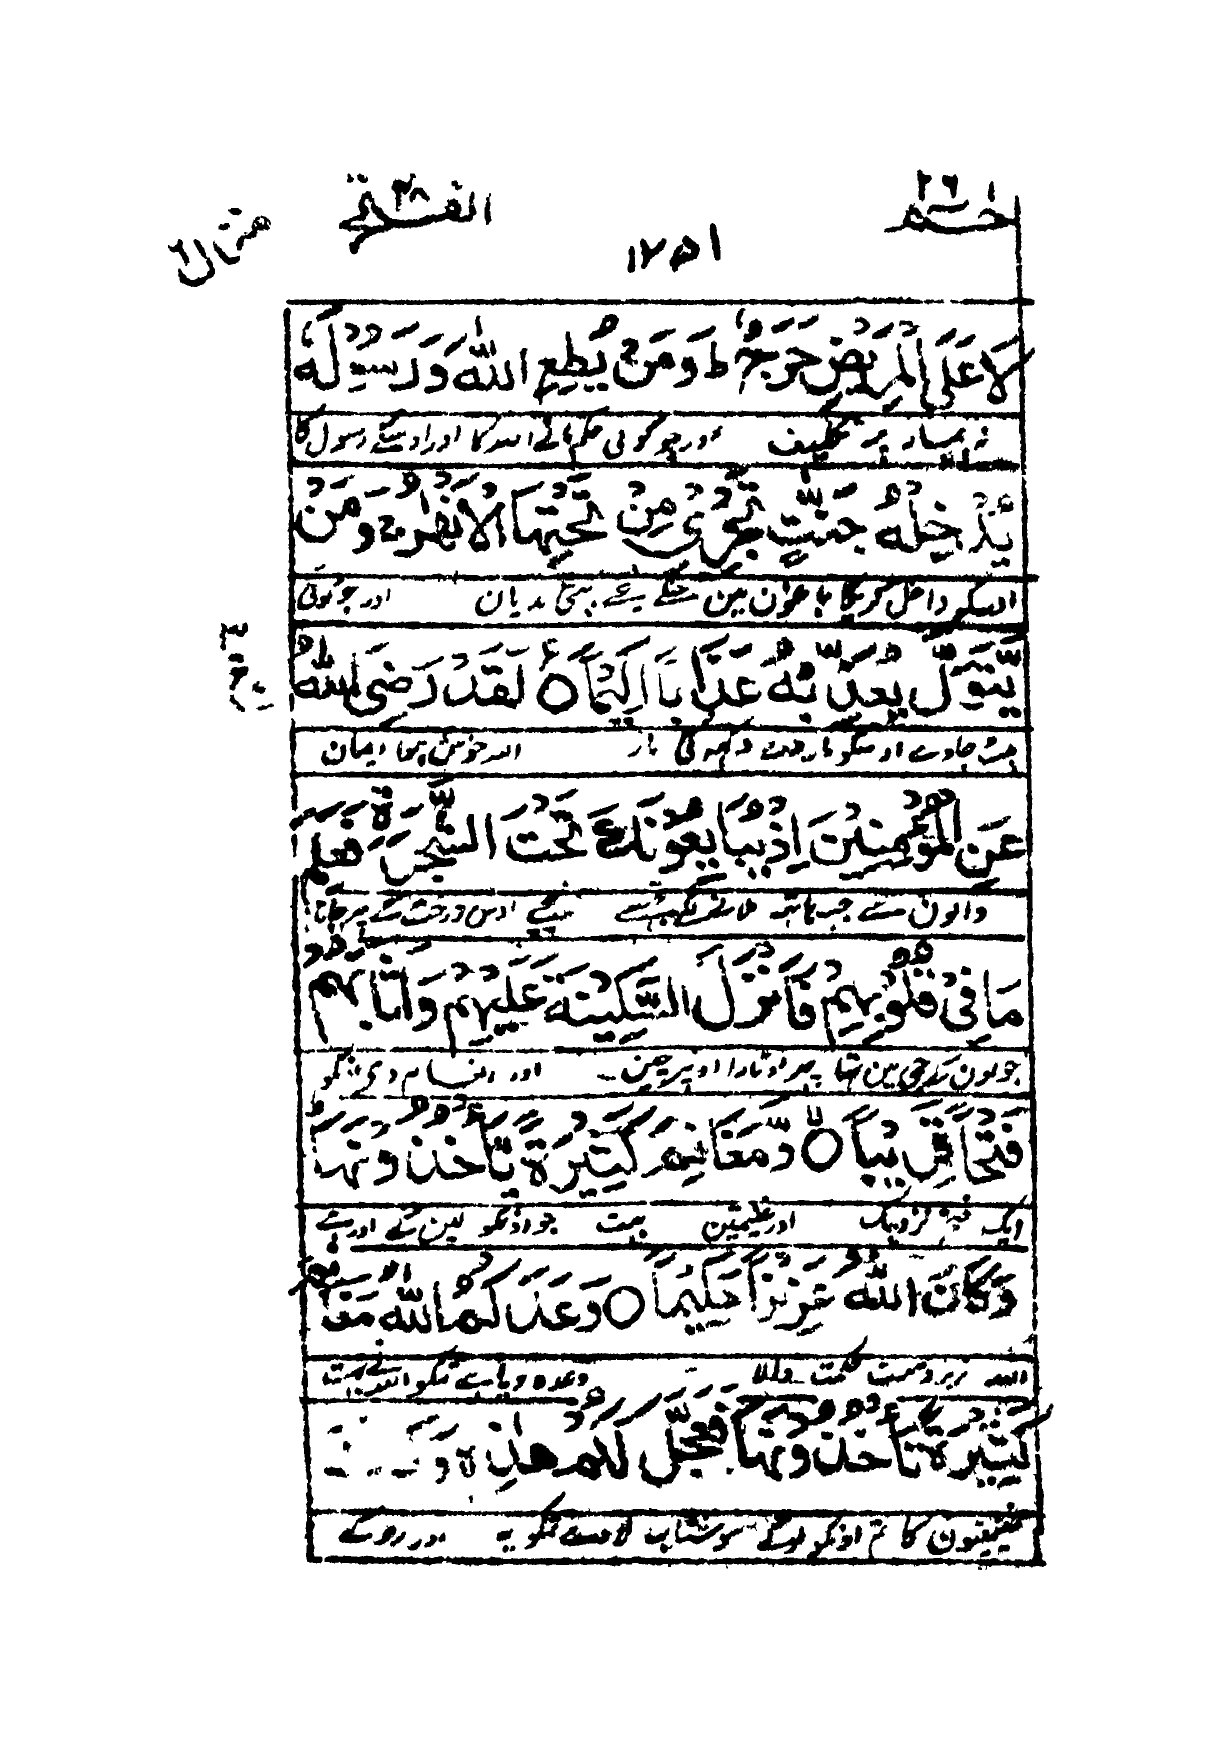 حٰم ٢٦
الفتح ٤٨
١٢٥١
منزل ٦
لَا عَلَى الْمَرِيْضِ حَرَجٌ ط وَمَنْ يُّطِعِ اللّٰهَ وَرَسُوْلَهٗ
نہ بیمار پر تکلیف اور جو کوئی حکم مانے اللہ کا اور اوسکے رسول کا
يُدْخِلْهُ جَنّٰتٍ تَجْرِىْ مِنْ تَحْتِهَا الْاَنْهٰرُ وَمَنْ
اسکو داخل کریگا باغون مین جنکے نیچے بہتی ندیان اور جو کوئی
يَّتَوَلَّ يُعَذِّبْهُ عَذَابًا اَلِيْمًا ○ لَقَدْ رَضِىَ اللّٰهُ
اوسکو مار دکھ کی مار اللہ خوش ہوا ایمان
عَنِ الْمُؤْمِنِيْنَ اِذْ يُبَايِعُوْنَكَ تَحْتَ الشَّجَرَةِ فَعَلِمَ
والون سے جب ہاتھ ملانے لگے تجھسے نیچے اوس درخت کے پھر جانا
مَا فِىْ قُلُوْبِهِمْ فَاَنْزَلَ السَّكِيْنَةَ عَلَيْهِمْ وَاَثَابَهُمْ
جو اون کے جی مین تھا پھر اوتارا اونپر چین اور انعام دی انکو
فَتْحًا قَرِيْبًا ○ وَّمَغَانِمَ كَثِيْرَةً يَّاْخُذُوْنَهَا
ایک فتح نزدیک اور غنیمتین بہت جو اونکو لین گے اور ہے
وَكَانَ اللّٰهُ عَزِيْزًا حَكِيْمًا ○ وَعَدَكُمُ اللّٰهُ مَغَانِمَ
اللہ زبردست حکمت والا وعدہ دیا ہے تمکو اللہ نے بہت
كَثِيْرَةً تَاْخُذُوْنَهَا فَعَجَّلَ لَكُمْ هٰذِهٖ وَ
غنیمتون کا تم اونکو لوگے سو شتاب لادے تمکو یہ اور روکے